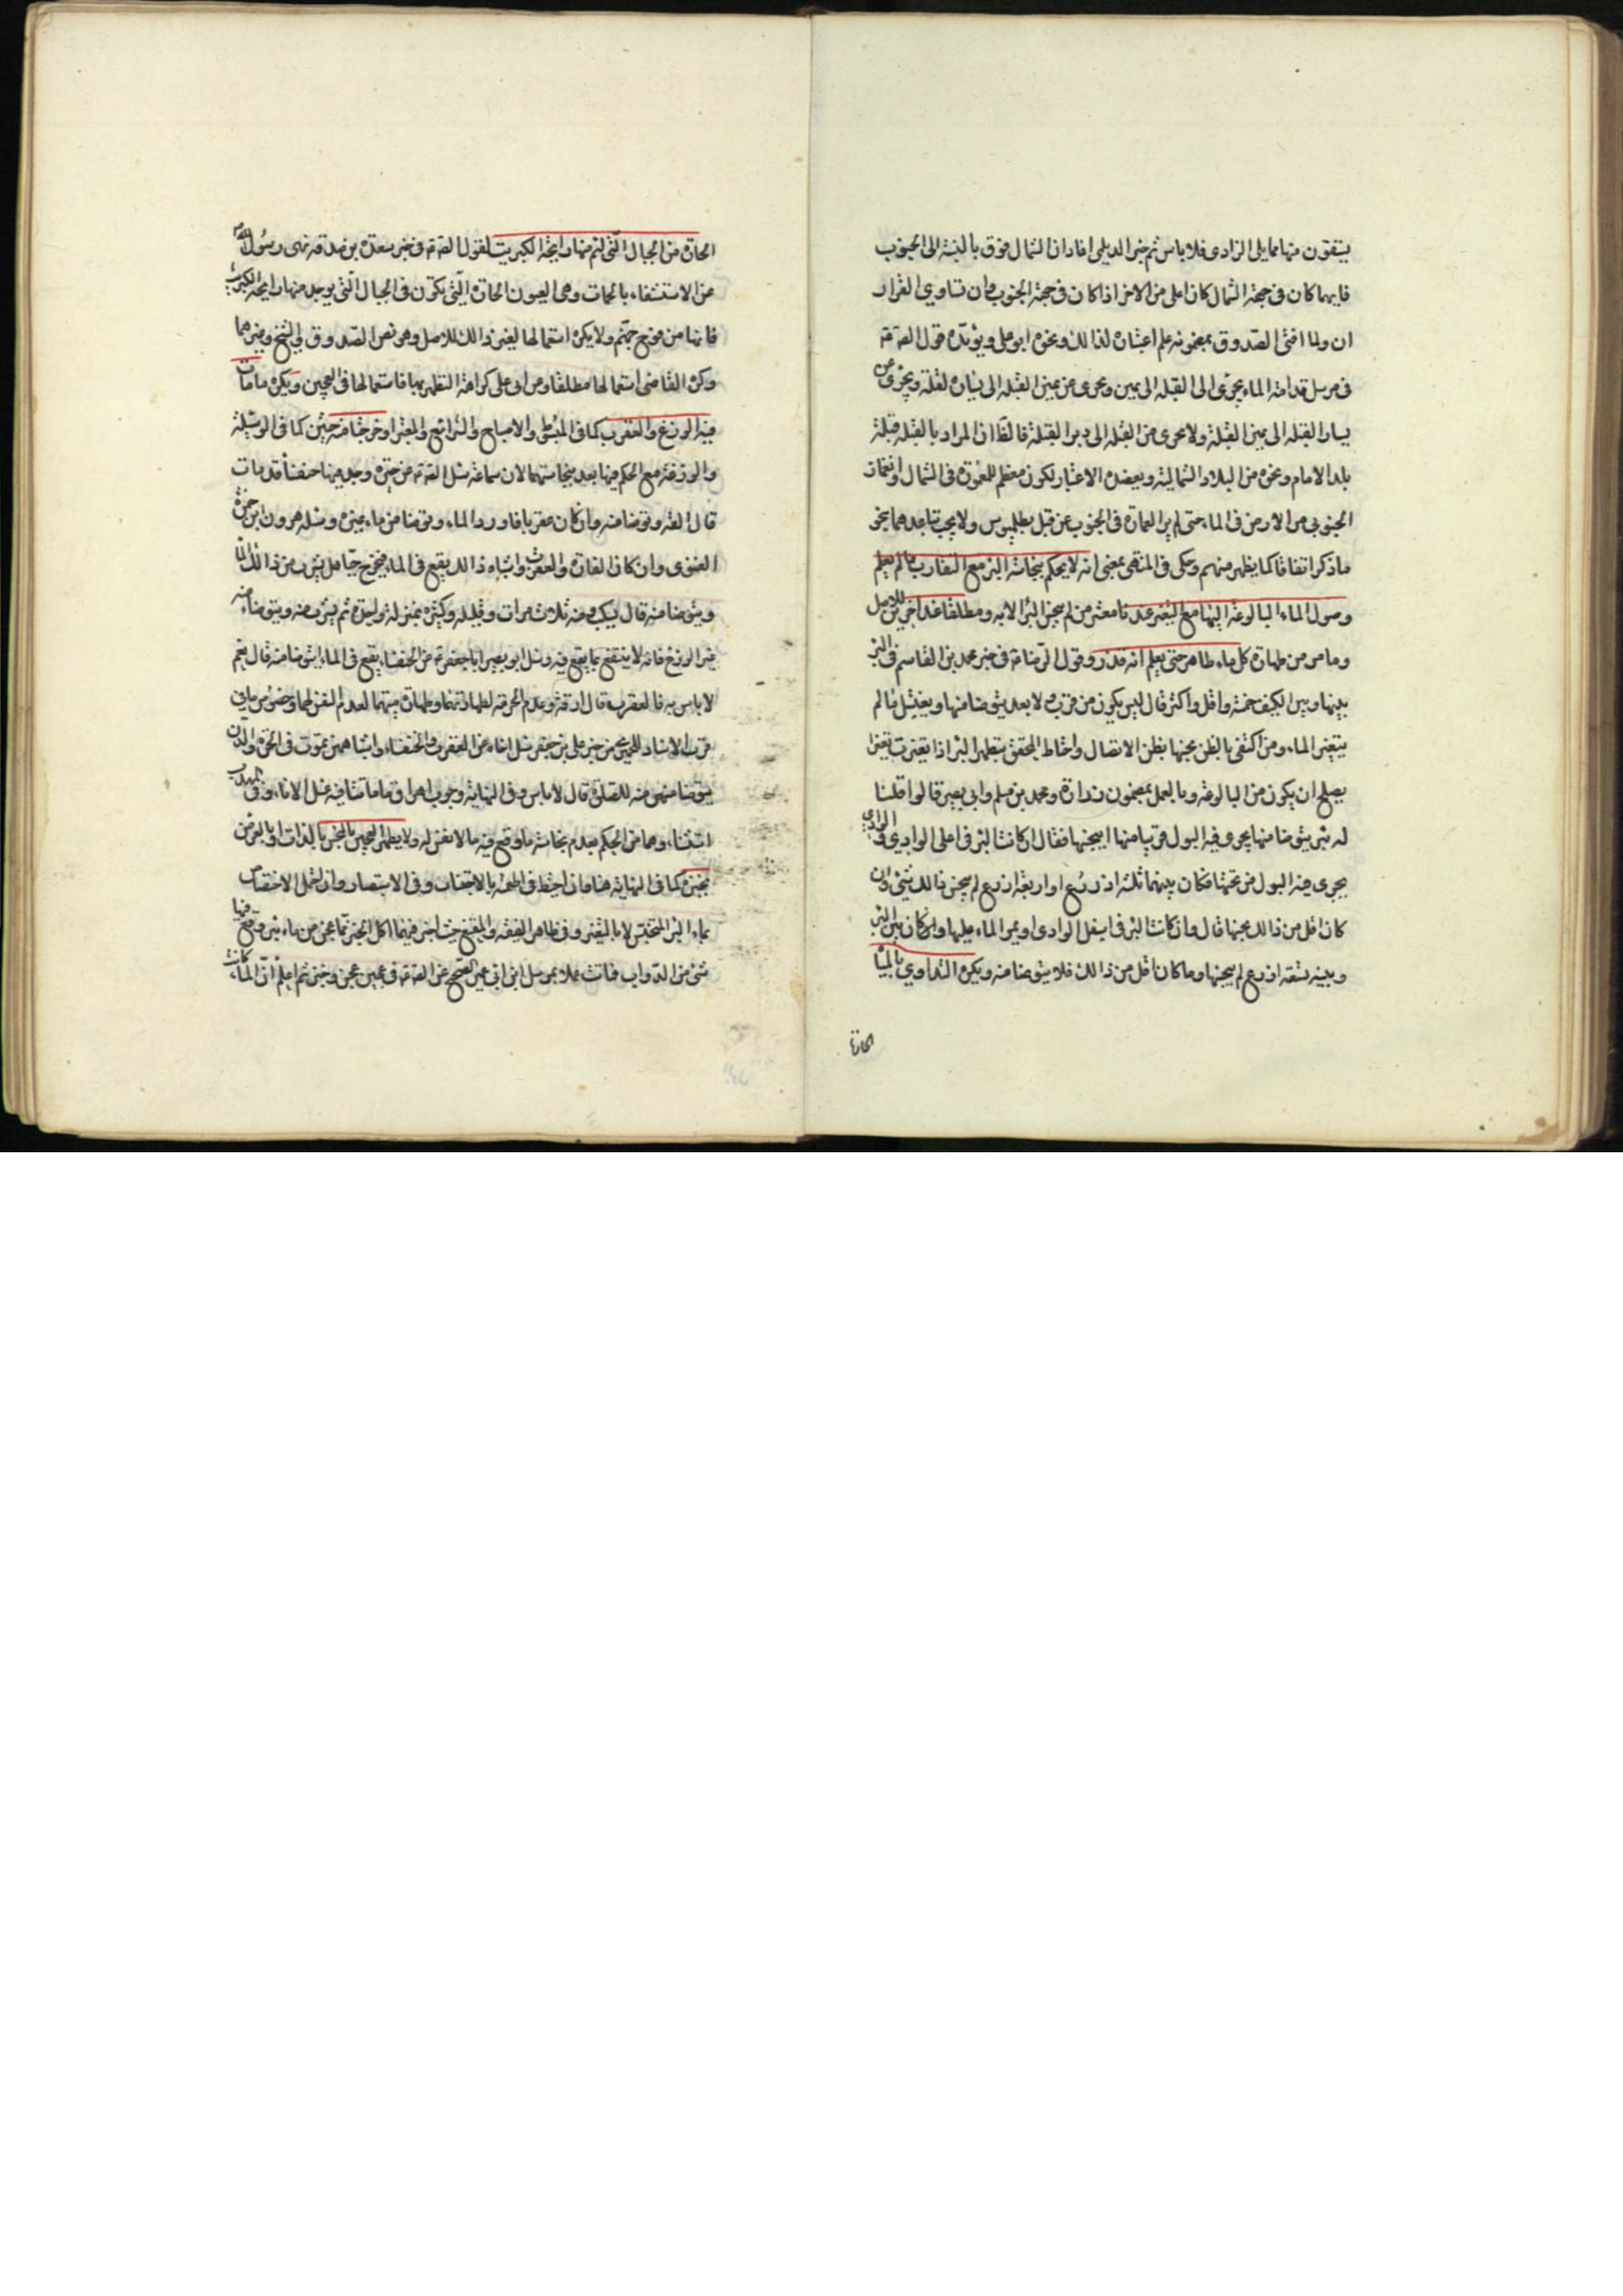 يستقون منها مما يلي الوادي فلا باس ثم خبر الديلمي افاد ان الشمال فوق بالنسبة الى الجنوب
فايهما كان في جهة الشمال كان اعلى من الاخر اذا كان في جهة الجنوب وان تساوي القرار
ان ولما افتى الصدوق بمضمونه علم اعتباره لذالك ونحوه ابو علي ويؤيده قول الصٓ عٓ
في مرسل قدامة الماء يجري الى القبلة الى يمين ويجري عن يمين القبلة الى يسار القبلة ويجري عن
يسار القبلة الى يمين القبلة ولا يجري من القبلة الى دبر القبلة فالظ ان المراد بالقبلة قبلة
بلد الامام ونحوه من البلاد الشمالية ويعضده الاعتبار لكون معظم المعمورة في الشمال وانغمار
الجنوبي من الارض في الماء حتى لم ير العمارة في الجنوب عن قبل بطلميوس ولا يجب تباعدهما بنحو
ما ذكر اتفاقا كما يظهر منهم وحكى في المنتهى بمعنى انه لا يحكم بنجاسة البئر مع التقارب ما لم يعلم
وصول الماء البالوعة اليها مع التغير عندنا معشر من لم ينجس البئر الا به ومطلقا عند اخرين للاصل
وما مر من طهارة كل ماء طاهر حتى يعلم انه قذر وقول الرضا عٓ في خبر محمد بن القاسم في البئر
بينها وبين الكنيف خمسة واقل واكثر قال ليس يكره من قرب ولا بعد يتوضا منها ويغتسل ما لم
يتغير الماء ومن اكتفى بالظن نجسها بظن الاتصال واحتاط المحقق بتطهر البئر اذا تغيرت تغيرا
يصلح ان يكون من البالوعة وبالعمل بمضمون زرارة ومحمد بن مسلم وابي بصير قالوا قلنا
له بئر يتوضا منها يجري فيه البول قريبا منها اينجسها فقال ان كانت البئر في اعلى الوادي والوادي
يجري فيه البول من تحتها فكان بينهما ثلثة اذرع او اربعة اذرع لم ينجس ذالك شيئ وان
كان اقل من ذالك نجسها قال وان كانت البئر في اسفل الوادي ويمر الماء عليها وكان بين البئر
وبينه تسعة اذرع لم ينجسها وما كان اقل من ذالك فلا يتوضا منه ويكره التداوي بالمياه
الحارة
الحارة من الجبال التي يشم منها رايحة الكبريت لقول الصٓ عٓ في خبر مسعدة بن صدقه نهى رسول اللهٓ
عن الاستشفاء بالحمات وهي العيون الحارة التي تكون في الجبال التي يوجد منها رايحة الكبريت
فانها من فوح جهنم ولا يكره استعمالها لغير ذالك للاصل وهو نص الصدوق في الشيخ وغيرهما
وكره القاضي استعمالها مطلقا ومر ابي علي كراهة التطهر بها فاستعمالها في العجين ويكره ما مات
فيه الوزغ والعقرب كما في المبسوط والاصباح والشرائع والمعتبر او خرجا منه حيين كما في الوسيلة
والوزغة مع الحكم فيها بعد نجاستهما لان سماعة سئل الصٓ عٓ عن جرة وجد فيها خنفساء قد مات
قال القه وتوضا منه وان كان عقربا فاورد الماء وتوضا من ماء غيره وسئله هرون ابن حمزة
الغنوي وان كان الفارة والعقرب واشباه ذالك يقع في الماء فيخرج حيا هل يشرب من ذالك الماء
ويتوضا منه قال يسكب منه ثلاث مرات وقليله وكثيره بمنزلة واحدة ثم يشرب منه ويتوضا منه
غير الوزغ فانه لا ينتفع بما يقع فيه وسئل ابو بصير ابا جعفر عٓ عن الخنفساء يقع في الماء ايتوضا منه قال نعم
لا باس به قال العقرب قال ارقه وعدم الحرمة لطهارتهما وطهارة ميتهما لعدم النفس لهما وخصوص ما في
قرب الاسناد للحميري من خبر علي بن جعفر سئل اخاه عن العقرب والخنفساء واشباههن تموت في الجرة والدن
يتوضا منهن منه للصلوة قال لا باس وفي النهاية وجوب اهراق ما ماتتا فيه وغسل الاناء وفي المهذب
استثناء وهما من الحكم بعدم نجاسة ما وقع فيه ما لا نفس له ولا يطهر العجين بالنجس بالذات او بالعرض
بخبزه كما في النهاية هنا وان احتاط في اطعمة بالاجتناب وفي الاستبصار وان احتمل الاختصاص
بماء البئر المتنجس لا بالتغير وفي ظاهر الفقيه والمقنع حيث اجيز فيهما اكل الخبز مما عجن من ماء بئر وقع فيها
شيئ من الدواب فماتت عملا بمرسل ابن ابي عمير الصحيح عن الصٓ عٓ في عجين عجن وخبز ثم اعلم ان الماء كانت